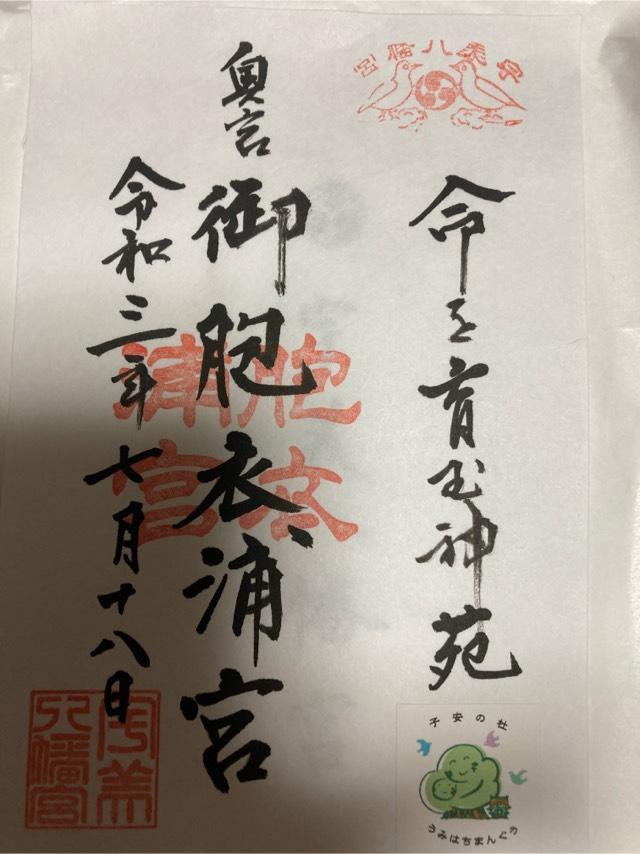 宇美八幡宮
命を育む神苑
子安の杜
うみはちまんぐう
奥宮
御胞衣浦宮
胞衣
浦宮
令和三年七月十八日
宇美
八幡宮